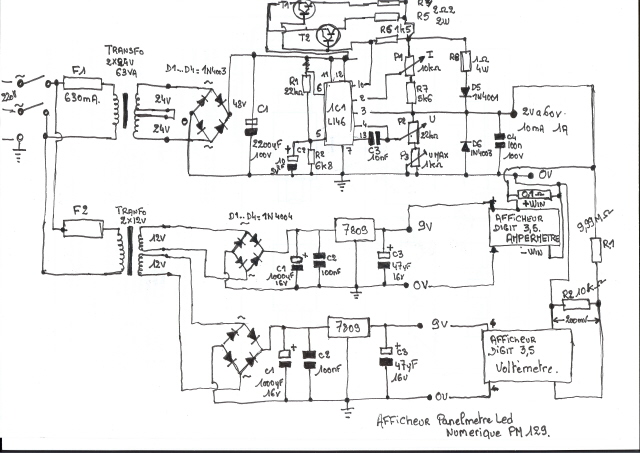 T1
R5 2Ω2
2W
T2
R6 1k5
TRANSFO
2x24V
63VA
F1
630mA.
220V
24V
24V
D1...D4=1N4003
48V
C1
2200µF
100V
R1
22kΩ
11 12
6
10
2
3
4
13
5
7
IC1
L146
P1 I
10kΩ
R7
5k6
R8 1Ω
4W
D5
1N4001
2V a 60V.
10mA 1A
P2 U
22kΩ
P3 UMAX
1kΩ
C3
10nF
C2
10
R2
6k8
D6
1N4003
C4
100n
100V
0V
0,1Ω
+WIN
AFFICHEUR
DIGIT 3,5.
AMPERMETRE
-WIN
9,99MΩ
R1
F2
TRANSFO
2x12V
12V
12V
D1...D4=1N4004
7809
9V
C1
1000µF
16V
C2
100nF
C3
47µF
16V
0V
R2 10KΩ
200mV
7809
9V
C1
1000µF
16V
C2
100nF
C3
47µF
16V
0V
AFFICHEUR
DIGIT 3,5
Voltèmetre.
AFFICHEUR Panelmetre Led
Numerique PM 129.